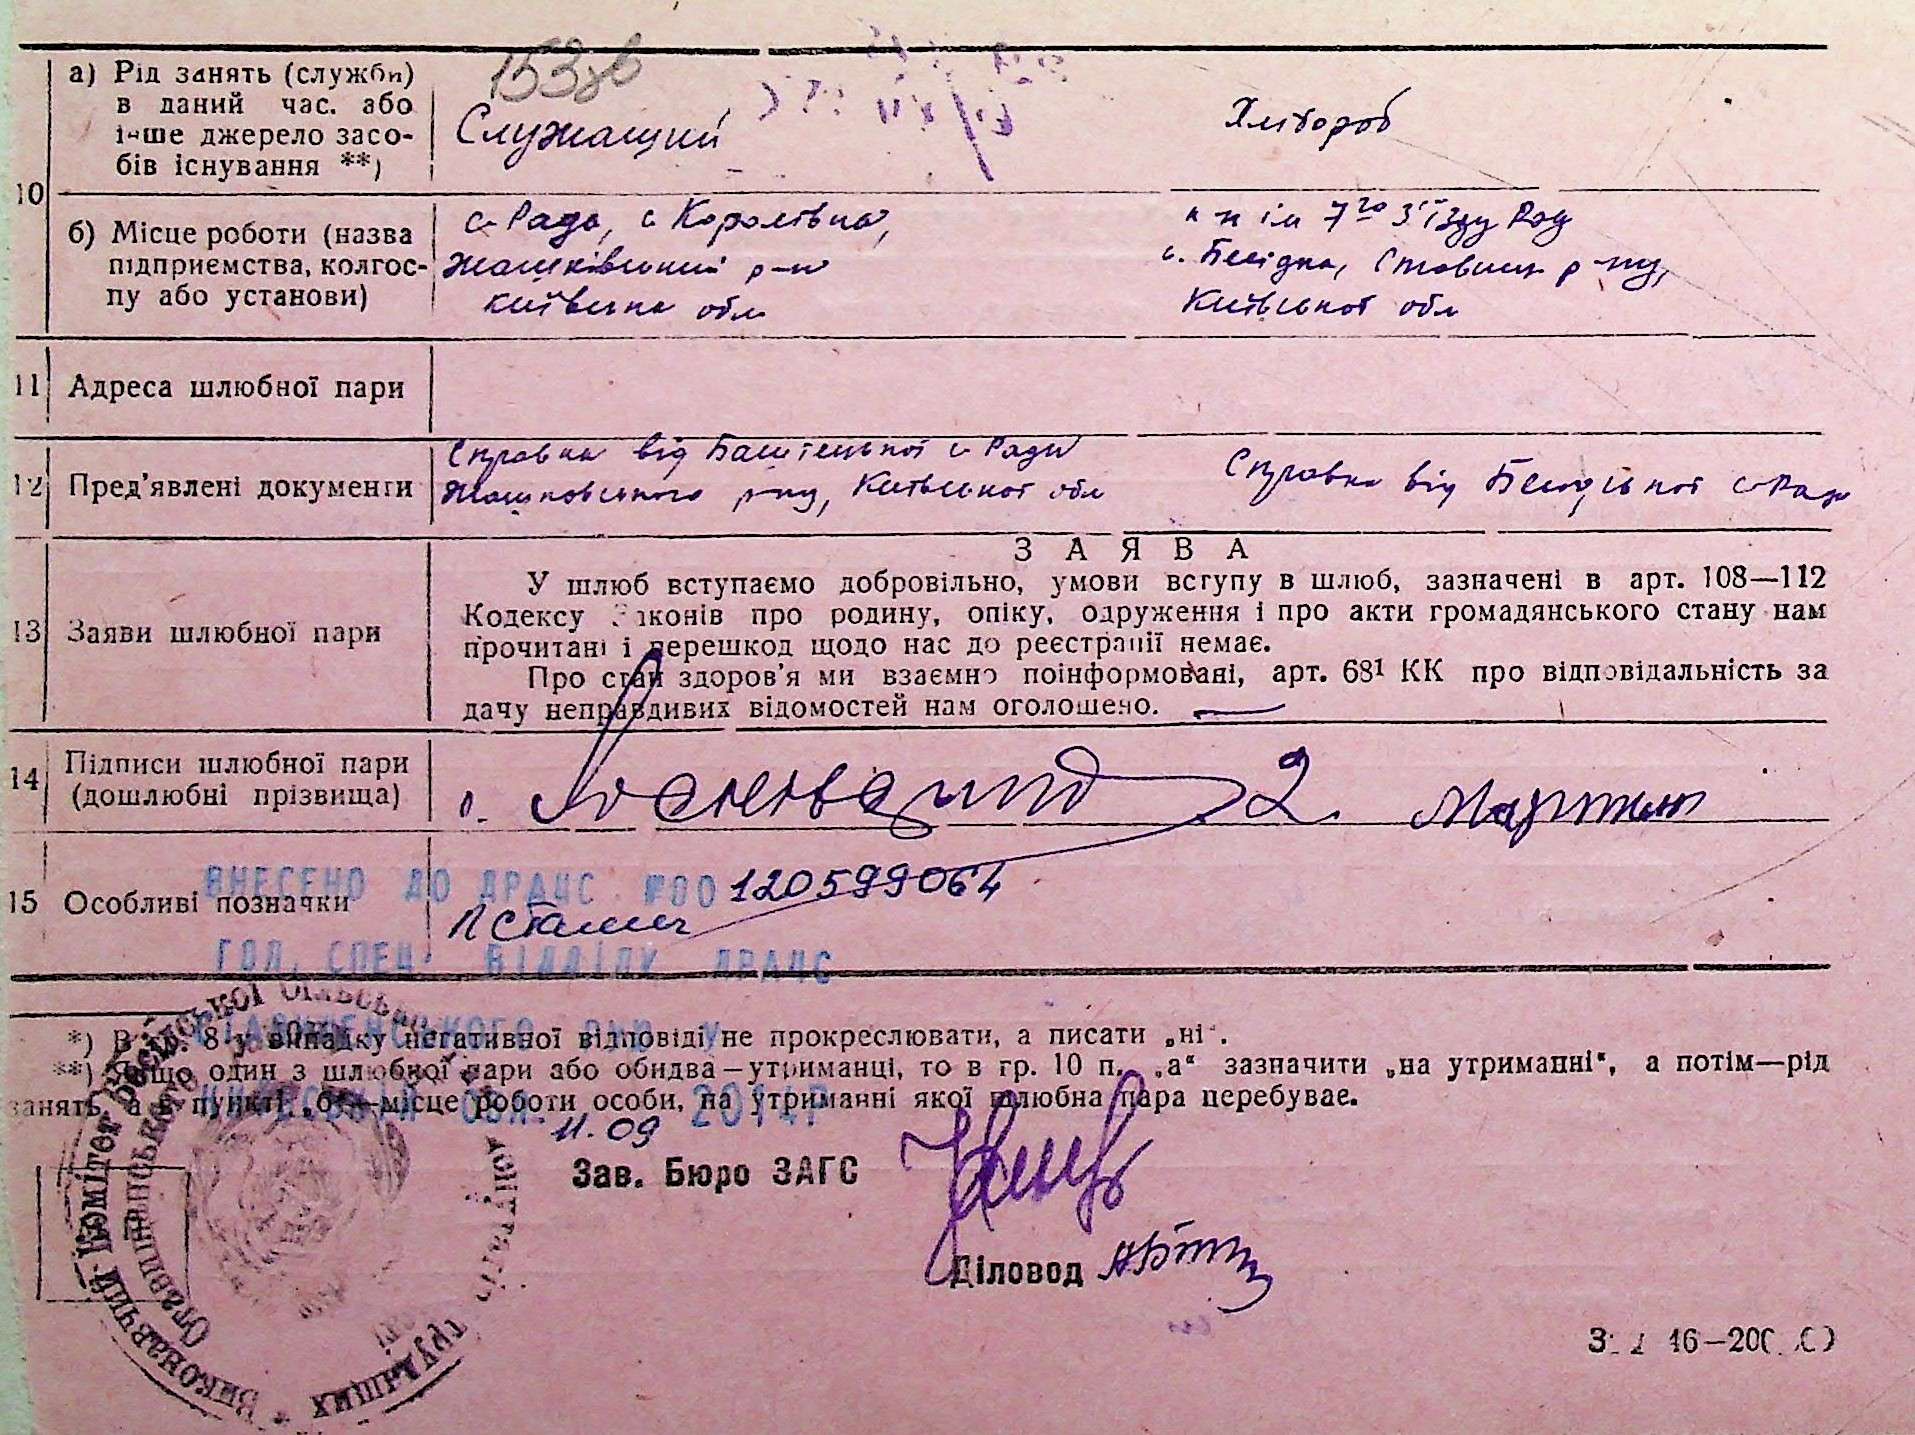 10
а) Рід занять (служби)
в даний час. або
інше джерело засо-
бів існування **)
Служащий
Хлібороб
б) Місце роботи (назва
підприємства, колгос-
пу або установи)
с-Рада, с Королівка,
Жашківський р-н
Київська обл
к-п ім 7го З'їзду Рад
с. Бесідка, Ставищ р-ну,
Київської обл
11 Адреса шлюбної пари
12 Пред'явлені документи
Справка від Баштецької с-Ради
Жашковського р-ну, Київської обл
Справка від Бесідської с-Ради
13 Заяви шлюбної пари
З А Я В А
У шлюб вступаємо добровільно, умови вступу в шлюб, зазначені в арт. 108—112
Кодексу Законів про родину, опіку, одруження і про акти громадянського стану нам
прочитані і перешкод щодо нас до реєстрації немає.
Про стан здоров'я ми взаємно поінформовані, арт. 68¹ КК про відповідальність за
дачу неправдивих відомостей нам оголошено.
14 Підписи шлюбної пари
(дошлюбні прізвища)
1.
2.
15 Особливі позначки
ВНЕСЕНО ДО ДРАЦС №00 120599064
ГОЛ. СПЕЦ. ВІДДІЛУ ДРАЦС
*) В 8 у випадку негативної відповіді не прокреслювати, а писати „ні".
**) Якщо один з шлюбної пари або обидва—утриманці, то в гр. 10 п. „а“ зазначити „на утриманні“, а потім—рід
занять, а в пункті „б“—місце роботи особи, на утриманні якої шлюбна пара перебуває.
11.09 2014р
Зав. Бюро ЗАГС
Діловод
Виконавчий Комітет Бесідської сільської
депутатів трудящих